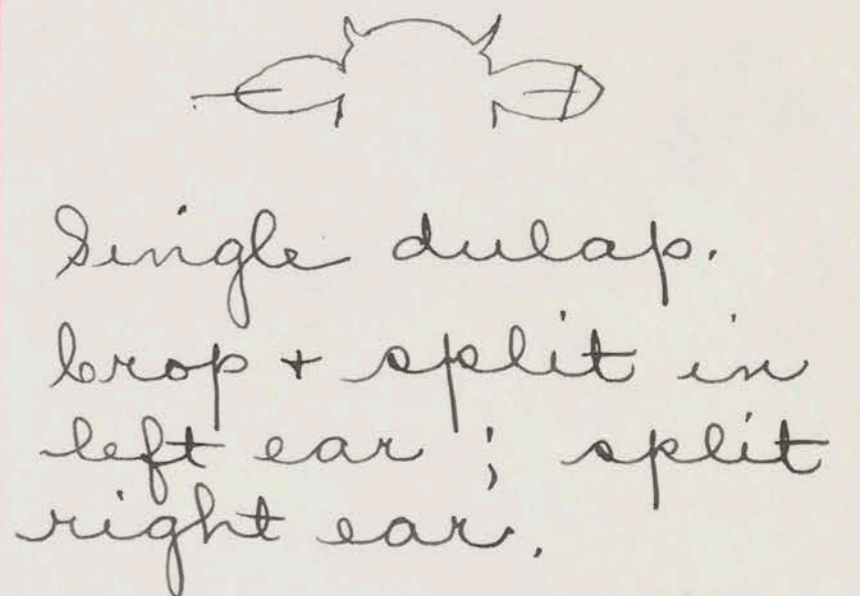 Single dulap.
Crop + split in
left ear ; split
right ear.